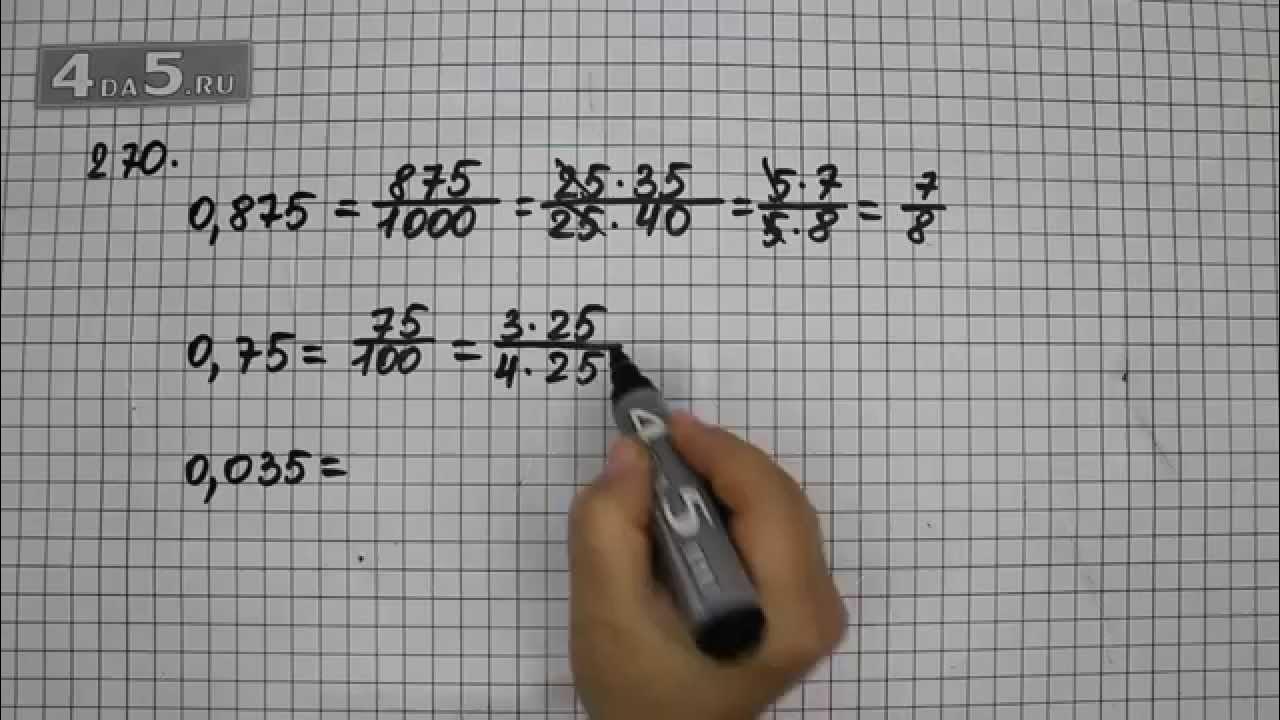 4DA5.RU
270.
0,875 = 875/1000 = 25·35/25·40 = 5·7/5·8 = 7/8
0,75 = 75/100 = 3·25/4·25
0,035 =
4 5